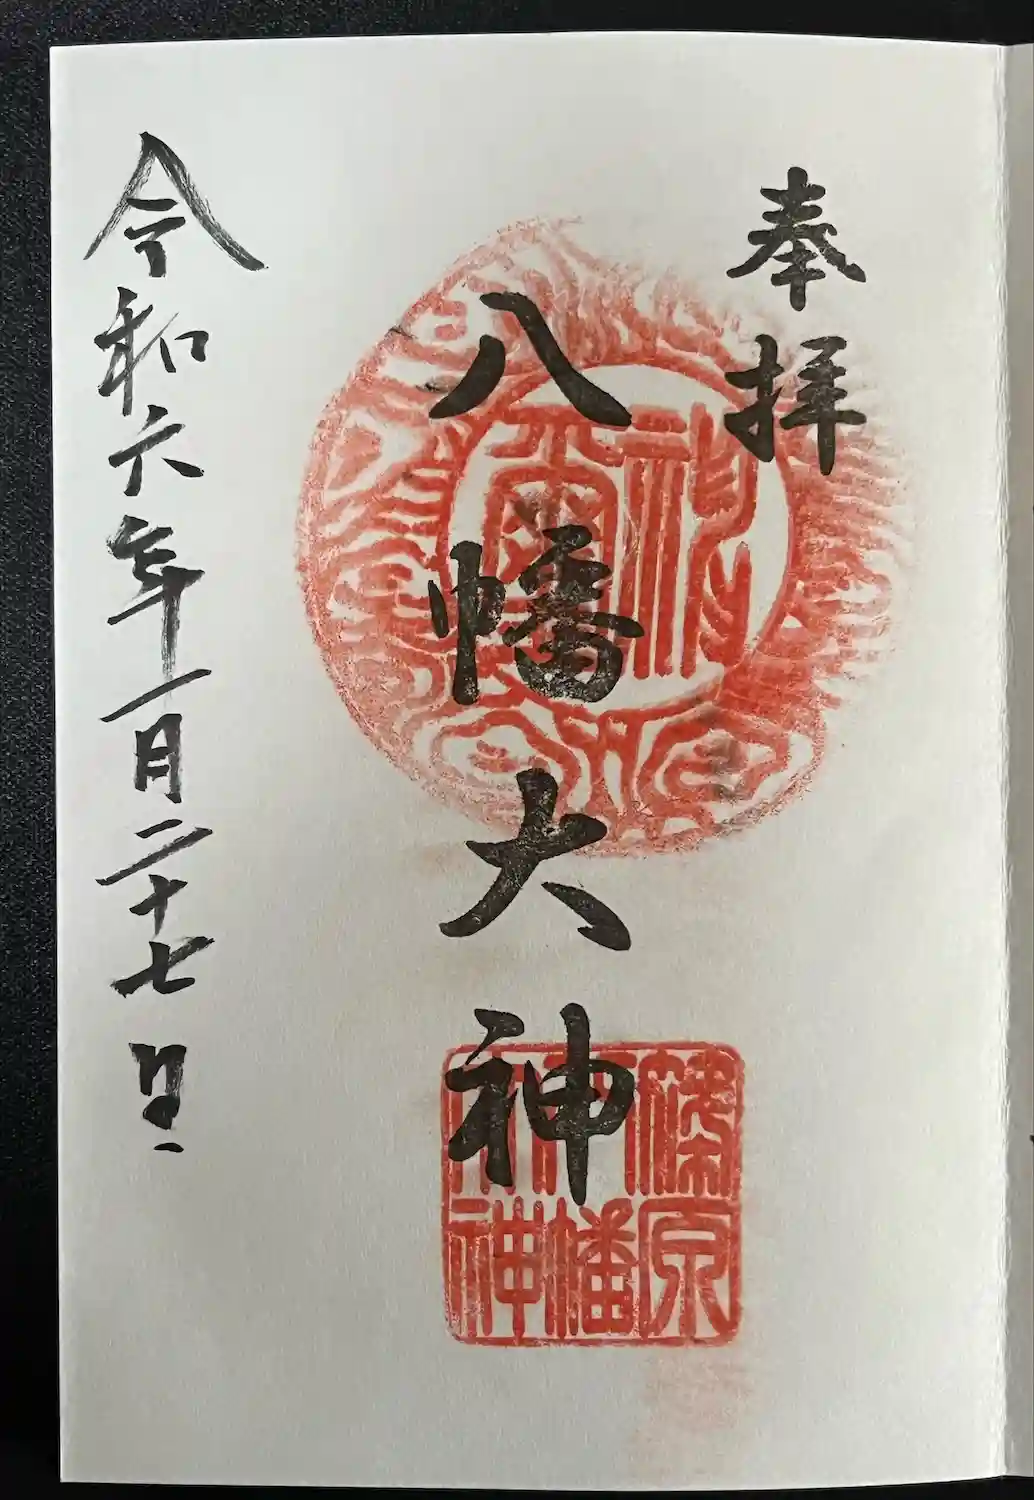 奉拝
八幡大神
令和六年一月二十七日
篠原
八幡
大神